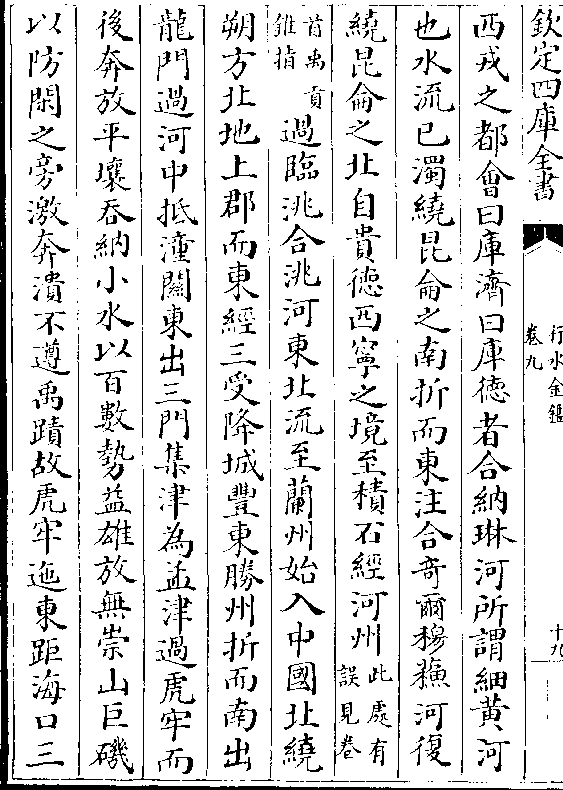 欽定四庫全書
行水金鑑
卷九
十九
西戎之都會曰庫濟曰庫德者合納琳河所謂細黃河
也水流已濁繞昆侖之南折而東注合奇爾穆蘓河復
繞昆侖之北自貴德西寧之境至積石經河州此處有
誤見卷
首禹貢
錐指過臨洮合洮河東北流至蘭州始入中國北繞
朔方北地上郡而東經三受降城豐東勝州折而南出
龍門過河中抵潼關東出三門集津為孟津過虎牢而
後奔放平壤吞納小水以百數勢益雄放無崇山巨磯
以防閑之旁激奔潰不遵禹蹟故虎牢迤東距海口三